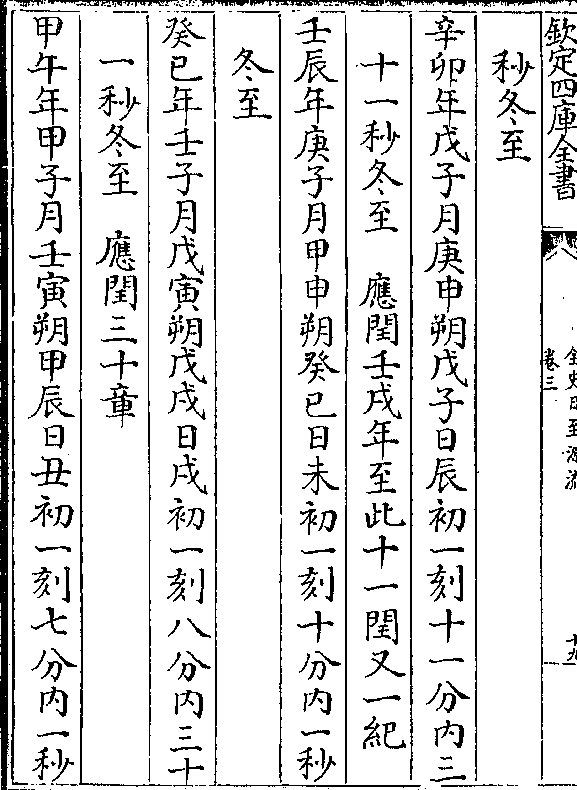 欽定四庫全書
全史日至源流
卷三
十九
秒冬至
辛卯年戊子月庚申朔戊子日辰初一刻十一分内三
十一秒冬至　應閏壬戌年至此十一閏又一紀
壬辰年庚子月甲申朔癸巳日未初一刻十分内一秒
冬至
癸巳年壬子月戊寅朔戊戌日戌初一刻八分内三十
一秒冬至　應閏三十章
甲午年甲子月壬寅朔甲辰日丑初一刻七分内一秒